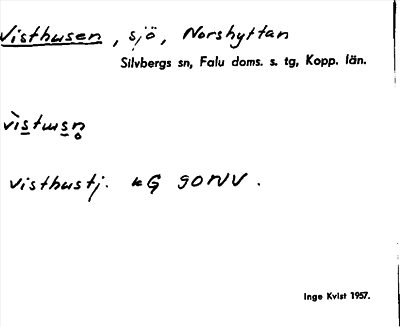 Visthusen, sjö, Norshyttan
Silvbergs sn, Falu doms. s. tg, Kopp. län.
vìstusn̥
Visthustj. kG 90NV.
Inge Kvist 1957.